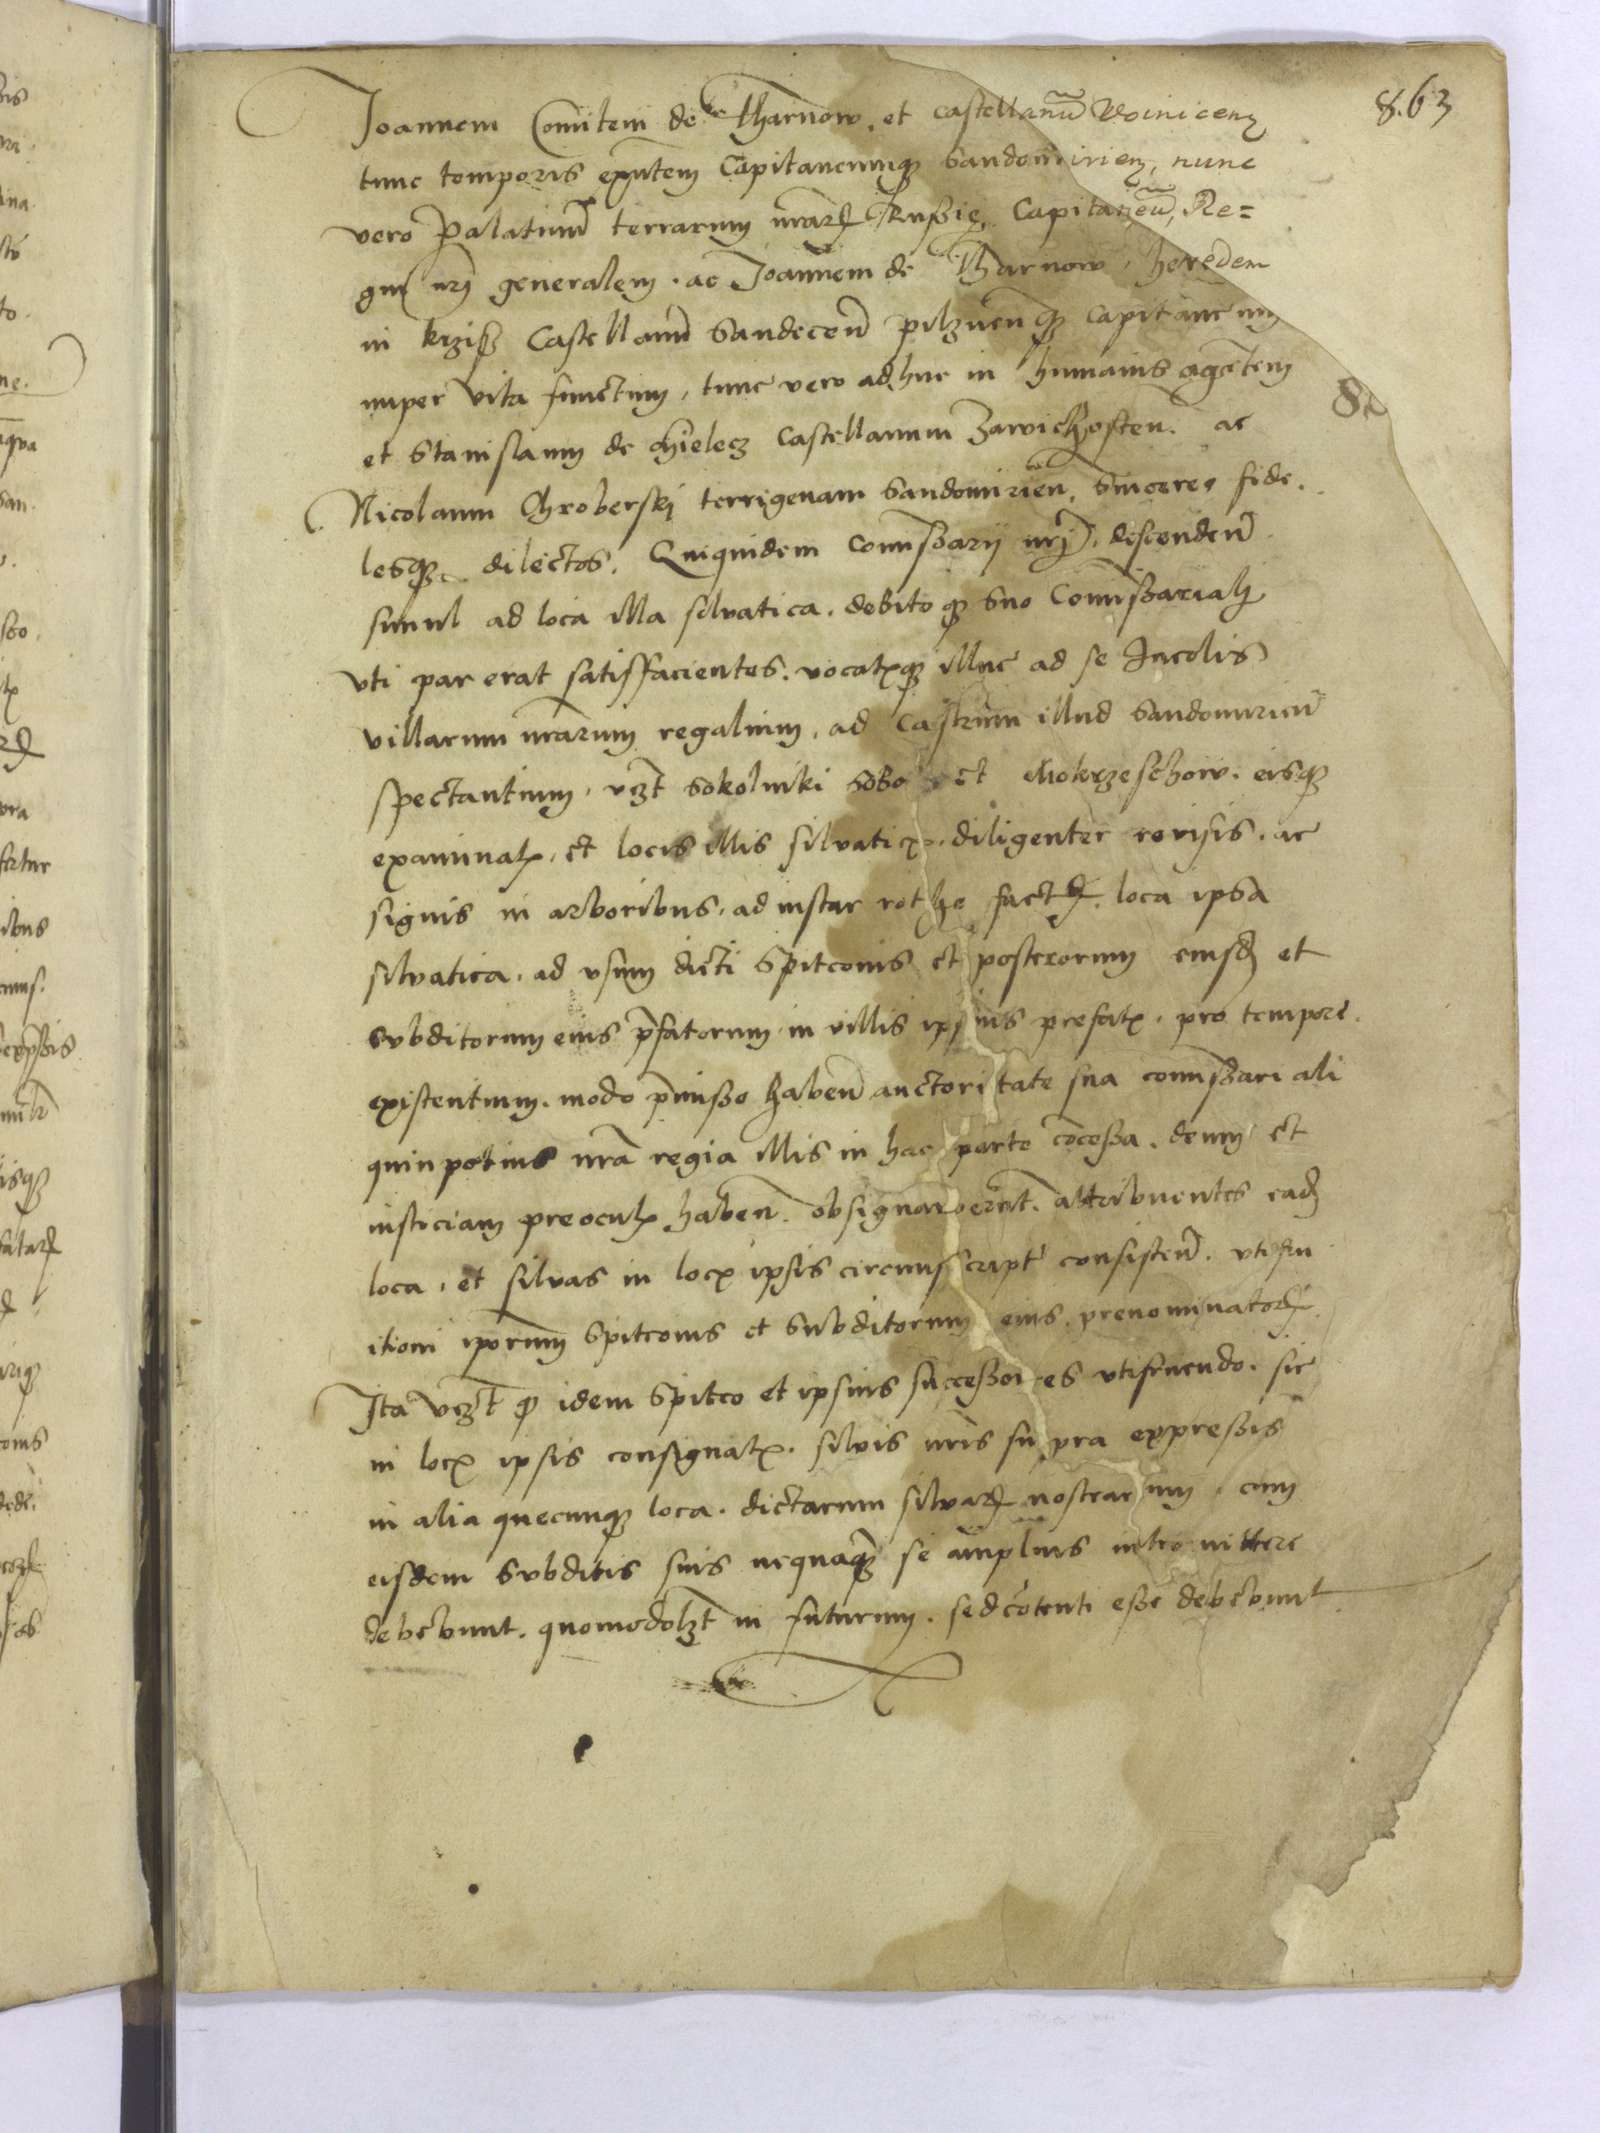 8.63
Joannem Comitem de Tharnow, et castellanū Woinicenֿ
tunc temporis exn̄tem Capitaneumqꝫ Sandomirien, nunc
vero Palatinū terrarum nr̄arꝝ Russie, Capitaneū, Re=
gni nr̄j generalem . ac Joannem de Tharnow . heredem
in krzisz Castellanū Sandecen̄ pilznen̄qꝫ capitaneum
nuper vita functum, tunc vero adhuc in humanis agētem
et Stanislaum de Mielecz Castellanum Zawichosten̄. ac
Nicolaum Chroberskj terrigenam Sandomirien̄, sincere fide.
lesqꝫ dilectos. Quiquidem Com̄issarij nr̄j, descenden̄
simul ad loca illa silvatica. debitoqꝫ suo Com̄issarialj
vti par erat satisfacientes. vocatisqꝫ illuc ad se Incolis
villarum nr̄arum regalium, ad castrum illud Sandomirien̄
spectantium, vꝫt Sokolniki Sobo et Mokrzeschow. eisqꝫ
examinatis, et locis illis silvaticis. diligenter revisis. ac
signis in arboribus, ad instar rothe factꝭ, loca ipsa
silvatica. ad vsum dicti Spitconis et posterorum eiusdꝫ et
subditorum eius p̄fatorum in villis ipsius prefatis. pro tempore.
existentium. modo p̄misso haben̄ auctoritate sua com̄issariali
quinpotius nr̄a regia illis in hac parte cōcessa. deum et
iusticiam preoculis haben̄. obsignaverūt. attribuentes eadꝫ
loca. et silvas in locis ipsis circumscriptꝭ consisten̄. vtifru
itioni ip̄orum Spitconis et subditorum eius prenominatorꝝ.
Ita vꝫt qꝫ idem Spitco et ipsius successores vtifruendo. sic
in locis ipsis consignatis. silvis nr̄is supra expressis
in alia quecunqꝫ loca. dictarum silvarꝝ nostrarum, cum
eisdem subditis suis nequaqꝫ se amplius intromittere
debebunt. quomodolꝫt in futurum. sed cōtenti esse debebunt